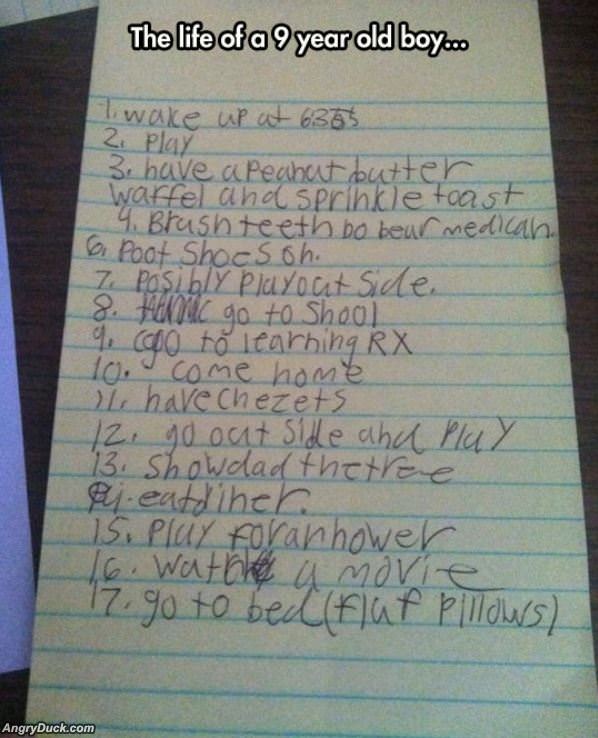 The life of a 9 year old boy...
1. wake up at 6:35
2. Play
3. have a Peanut butter
waffel and sprinkle toast
4. Brush teeth bo beur medican.
6. Poot Shoes oh.
7. Posibly Play out Side.
8. go to Shool
9. go to learning RX
10. come home
11. have chezets
12. go out side and play
13. show dad the tree
eat diner.
15. Play for an hower
16. watch a movie
17. go to bed (fluf pillows)
AngryDuck.com